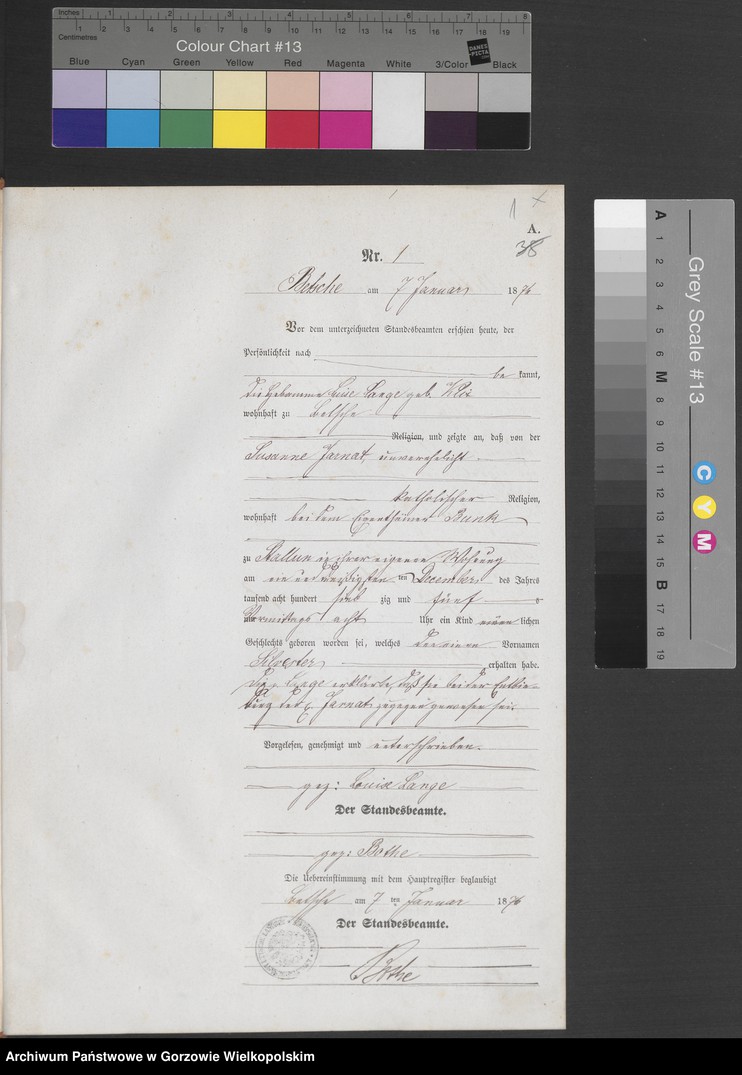 Inches 1 2 3 4 5 6 7 8
Centimetres 1 2 3 4 5 6 7 8 9 10 11 12 13 14 15 16 17 18 19
Colour Chart #13
DANES-PICTA
Blue Cyan Green Yellow Red Magenta White 3/Color Black
Grey Scale #13
A 1 2 3 4 5 6 M 8 9 10 11 12 13 14 15 B 17 18 19
C Y M
1 x
A.
38
Nr. 1
Betsche am 7 Januar 1876
Vor dem unterzeichneten Standesbeamten erschien heute, der
Persönlichkeit nach
be kannt,
die Hebamme Luise Lange geb.
wohnhaft zu Betsche
Religion, und zeigte an, daß von der
Susanne Jarnat, unverehelicht
katholischer Religion,
wohnhaft bei dem Eigenthümer Bunk
zu Stallun in ihrer eigenen Wohnung
am ein und dreißigsten ten December des Jahres
tausend acht hundert sieb zig und fünf
Vormittags acht Uhr ein Kind männ lichen
Geschlechts geboren worden sei, welches den einen Vornamen
Silvester erhalten habe.
Die Lange erklärte, daß sie bei der Entbin-
dung der Jarnat zugegen gewesen sei.
Vorgelesen, genehmigt und unterschrieben.
gez: Louise Lange
Der Standesbeamte.
gez: Bothe
Die Uebereinstimmung mit dem Hauptregister beglaubigt
Betsche am 7 ten Januar 1876
Der Standesbeamte.
Bothe
Archiwum Państwowe w Gorzowie Wielkopolskim